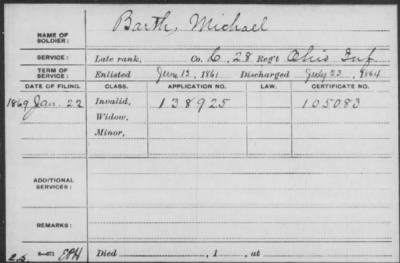 NAME OF SOLDIER: Barth, Michael
SERVICE: Late rank, Co. C, 28 Reg't Ohio Inf.
TERM OF SERVICE: Enlisted June 13, 1861 Discharged July 23, 1864
DATE OF FILING. CLASS. APPLICATION NO. LAW. CERTIFICATE NO.
1869 Jan. 22 Invalid, 138925 105083
Widow,
Minor,
ADDITIONAL SERVICES:
REMARKS:
Died , 1 , at